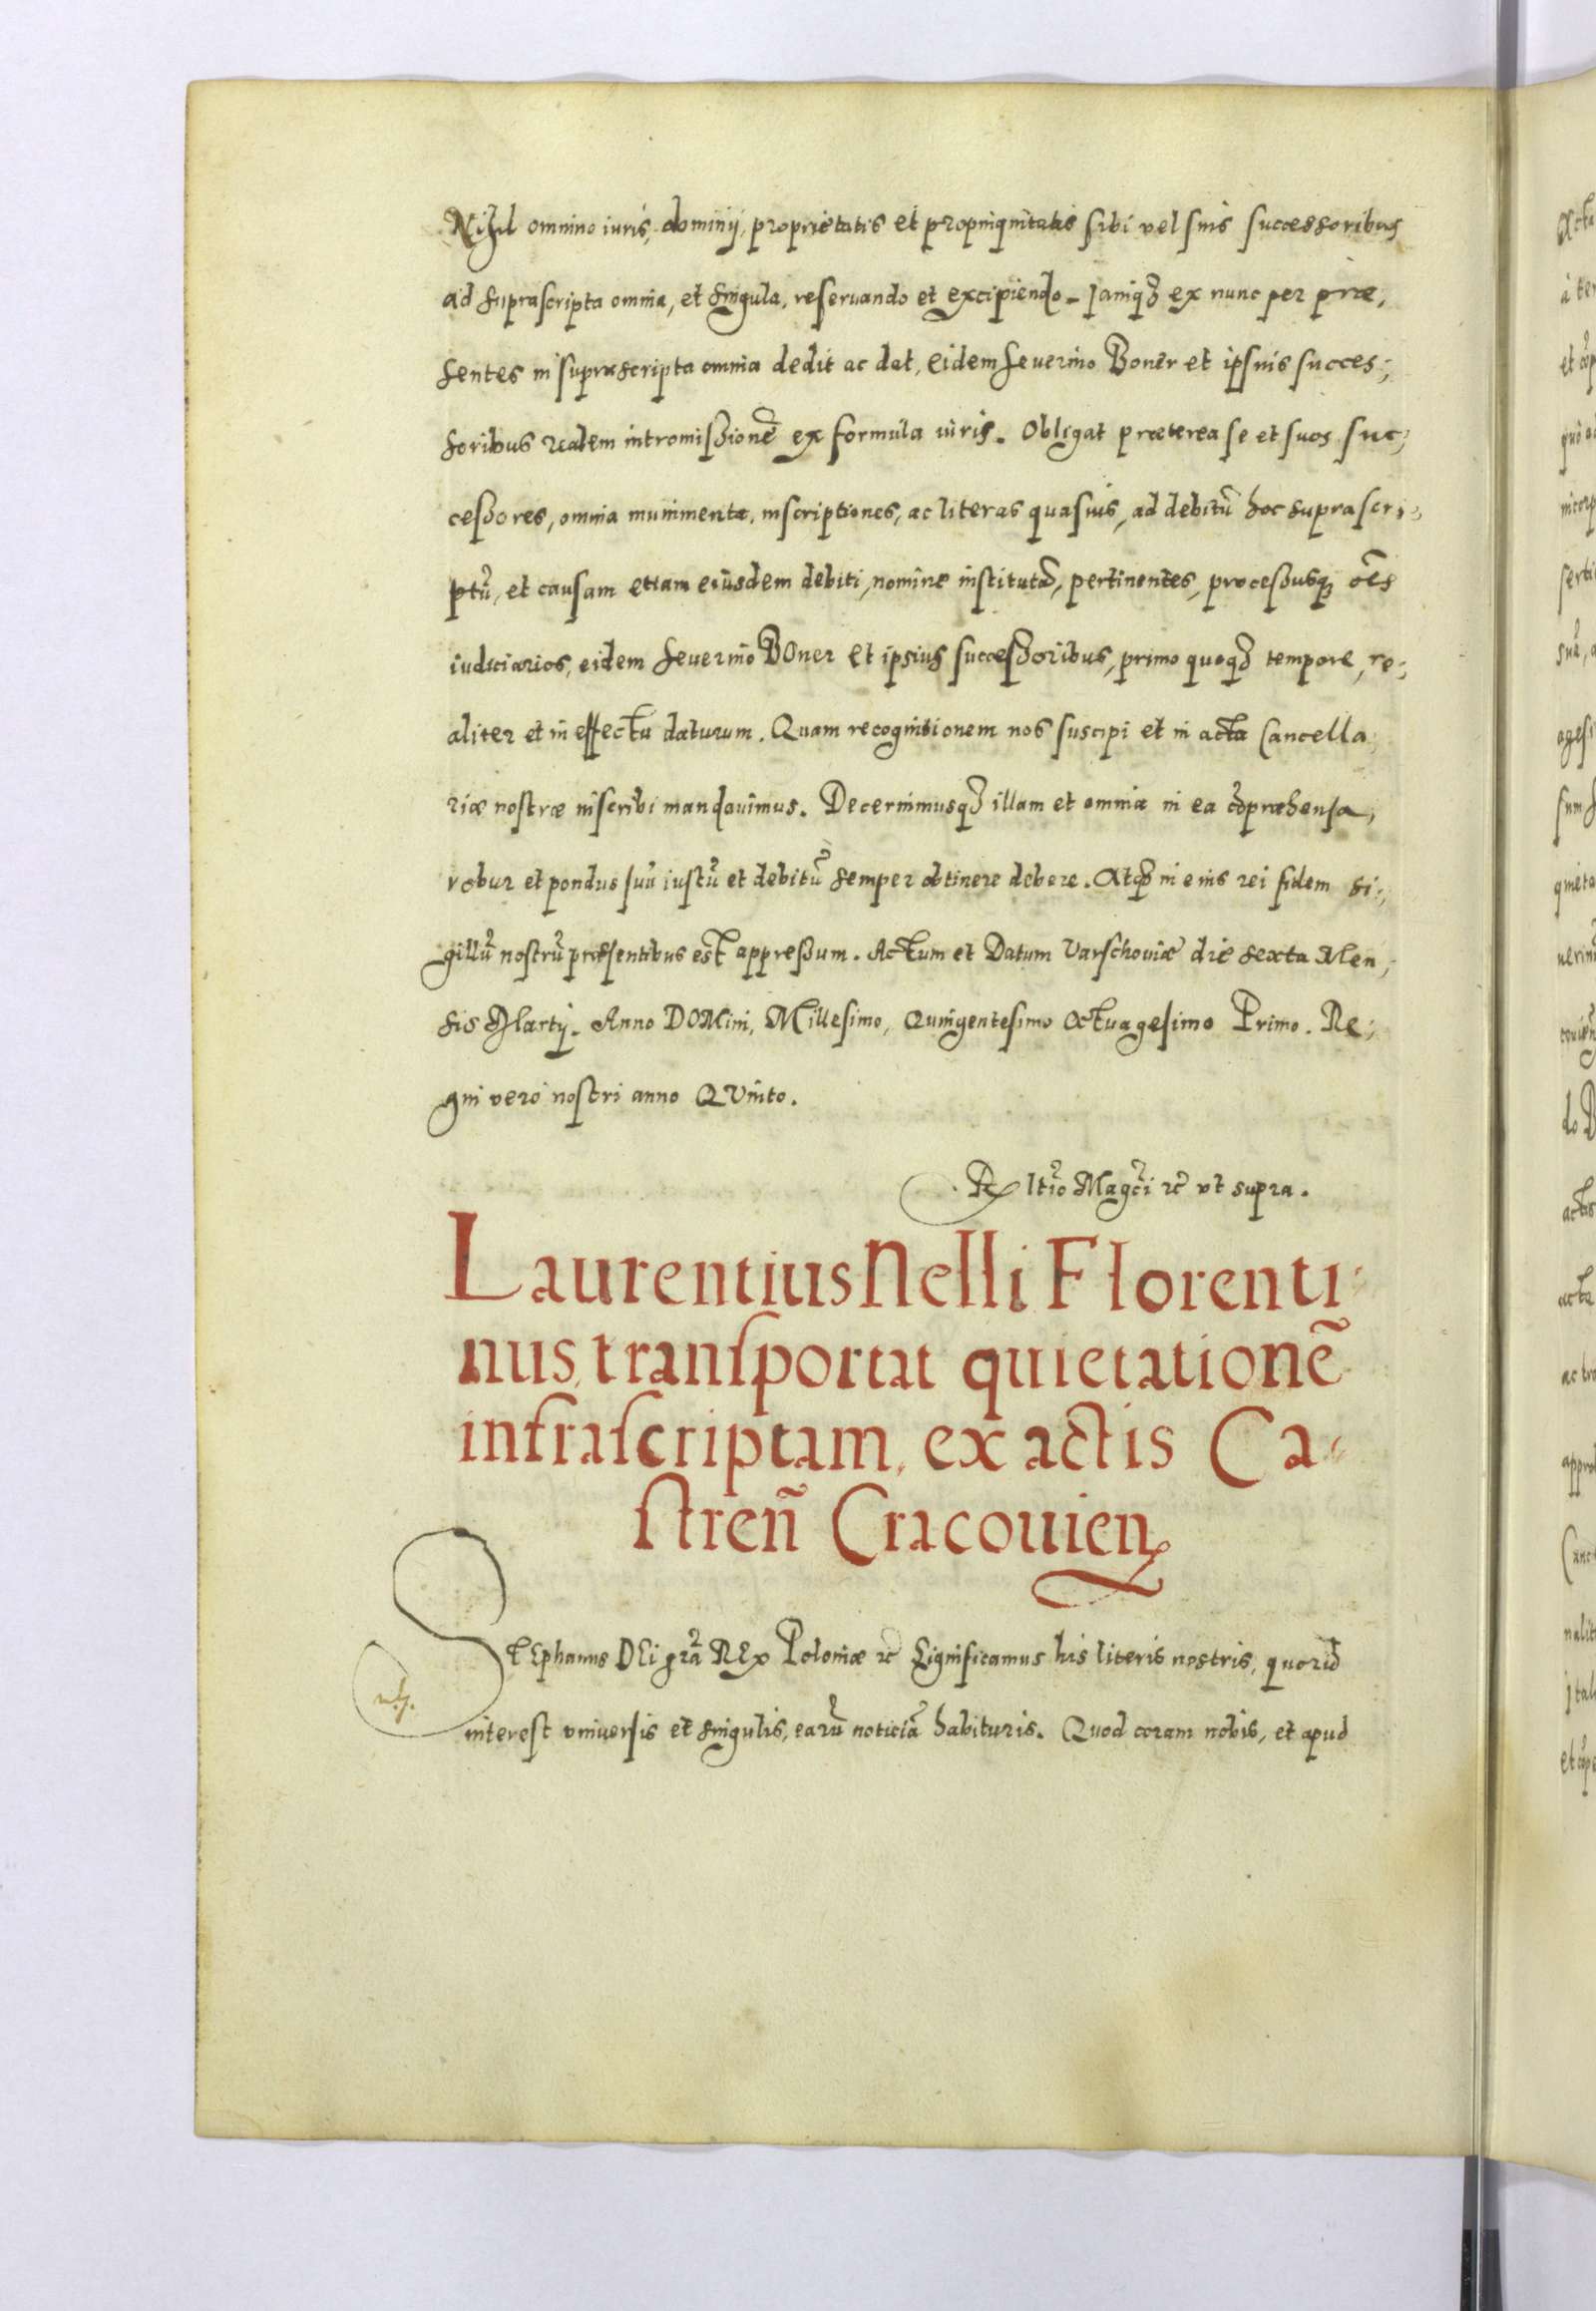 Nihil omnino iuris, dominij, proprietatis et propinquitatis sibi vel suis successoribus
ad suprascripta omnia, et singula, reseruando et excipiendo. Iamq₃ ex nunc per præ,
sentes in suprascripta omnia dedit ac dat, eidem Seuerino Boner et ipsius succes,,
soribus realem intromissionẽ ex formula iuris. Obligat præterea se et suos suc,,
cessores, omnia munimenta, inscriptiones, ac literas quasuis, ad debitũ hoc suprascri,,
ptũ, et causam etiam eiusdem debiti, nomine institutã, pertinentes, processusq₃ oẽs
iudiciarios, eidem Seuerino BOner et ipsius successoribus, primo quoq₃ tempore, re,,
aliter et in effectu daturum. Quam recognitionem nos suscipi et in acta Cancella,
riæ nostræ inscribi mandauimus. Decernimusq₃ illam et omnia in ea cõpræhensa,
robur et pondus suũ iustũ et debitũ semper obtinere debere. Atq₃ in eius rei fidem si,,
gillũ nostrũ præsentibus est appressum. Actum et Datum Varschouiæ die sexta Men,,
sis Martij. Anno DOMini, Millesimo, Quingentesimo Octuagesimo Primo. Re,,
gni vero nostri anno QVinto.
Rltio Magci rc̃ vt supra.
Laurentius Nelli Florenti,,
nus, transportat quietationẽ
infrascriptam, ex actis Ca,,
streñ Cracouien̄
StEphanus DEi grã REx Poloniæ rc̃ Significamus his literis nostris, quorũ
interest vniuersis et singulis, earũ noticiã habituris. Quod coram nobis, et apud